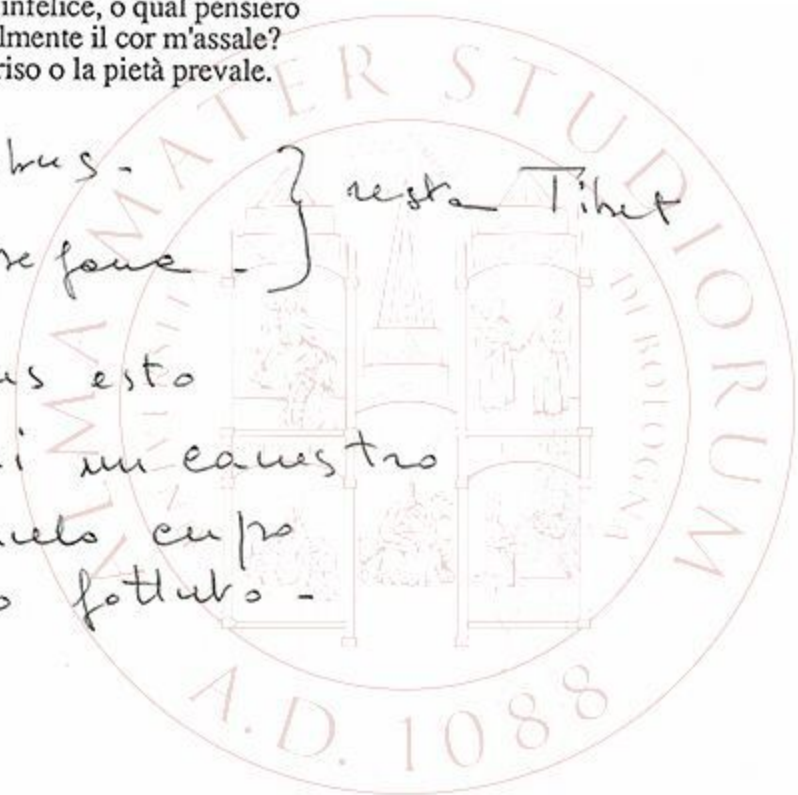 infelice, o qual pensiero
lmente il cor m'assale?
riso o la pietà prevale.
bus -
resta Tibet
se fone -
us esto
i un canestro
cupo
o fottuto -
ALMA MATER STUDIORUM
DI BOLOGNA
A.D. 1088